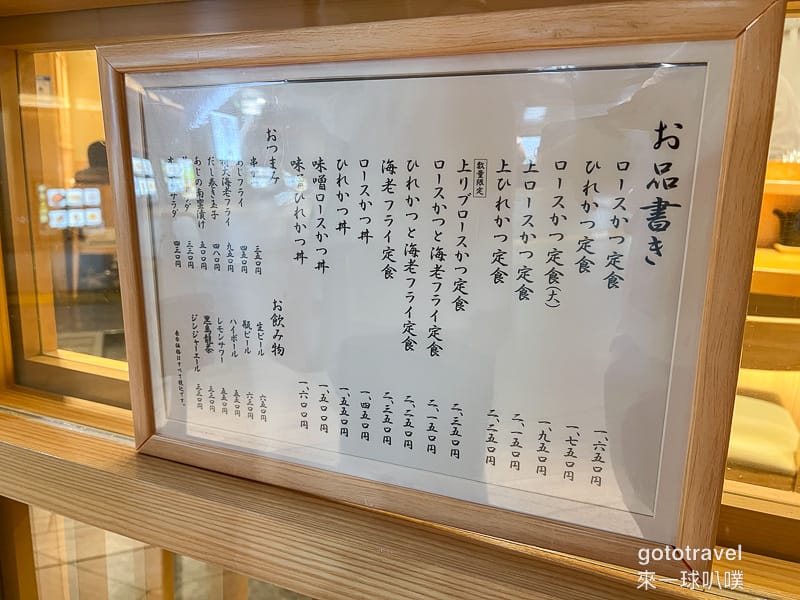 お品書き
ロースかつ定食 一、六五〇円
ひれかつ定食 一、七五〇円
ロースかつ定食(大) 一、九五〇円
上ロースかつ定食 二、一五〇円
上ひれかつ定食 二、二五〇円
数量限定
上リブロースかつ定食 二、三五〇円
ロースかつと海老フライ定食 二、一五〇円
ひれかつと海老フライ定食 二、二五〇円
海老フライ定食 二、三五〇円
ロースかつ丼 一、四五〇円
ひれかつ丼 一、五五〇円
味噌ロースかつ丼 一、五〇〇円
味噌ひれかつ丼 一、六〇〇円
おつまみ
串 三五〇円
あじフライ 四五〇円
大海老フライ 九五〇円
だし巻き玉子 四八〇円
あじの南蛮漬け 五〇〇円
ダ 三三〇円
サラダ 四三〇円
お飲み物
生ビール 六五〇円
瓶ビール 六三〇円
ハイボール 五五〇円
レモンサワー 五五〇円
黒烏龍茶 三三〇円
ジンジャーエール 三三〇円
表示価格はすべて税込です。
gototravel
來一球叭噗